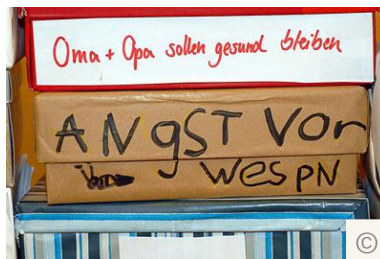 Oma + Opa sollen gesund bleiben
ANgST VOr
WESPN
©